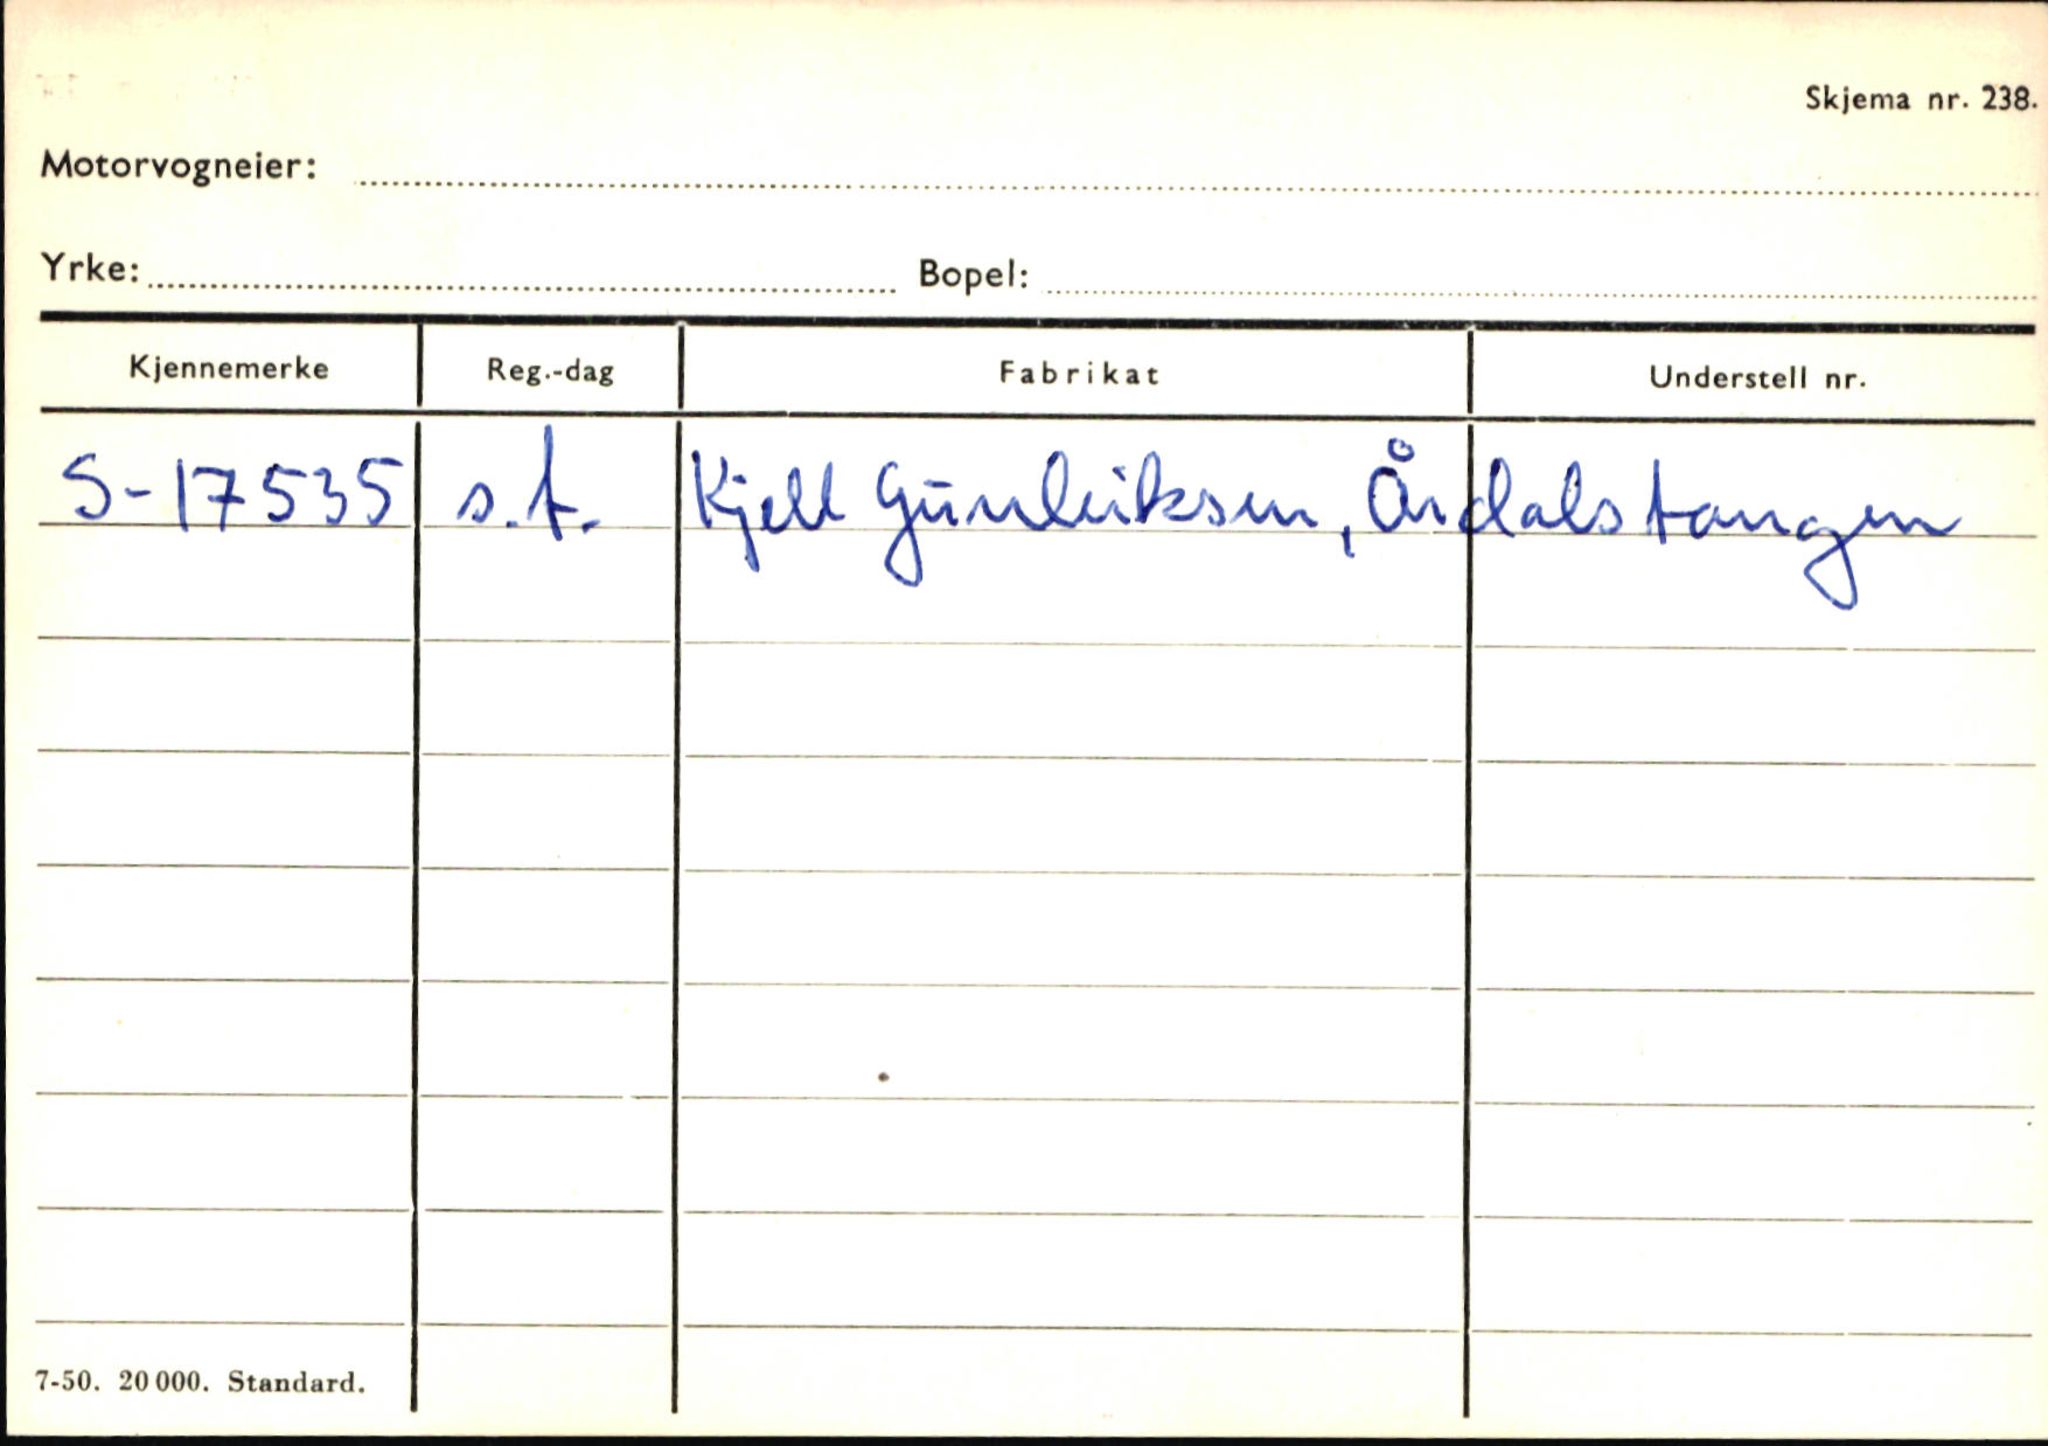 Skjema nr. 238.
Motorvogneier:
Yrke: Bopel:
Kjennemerke Reg.-dag Fabrikat Understell nr.
S-17535 s.t. Kjell Gunleiksen, Årdalstangen
7-50. 20 000. Standard.